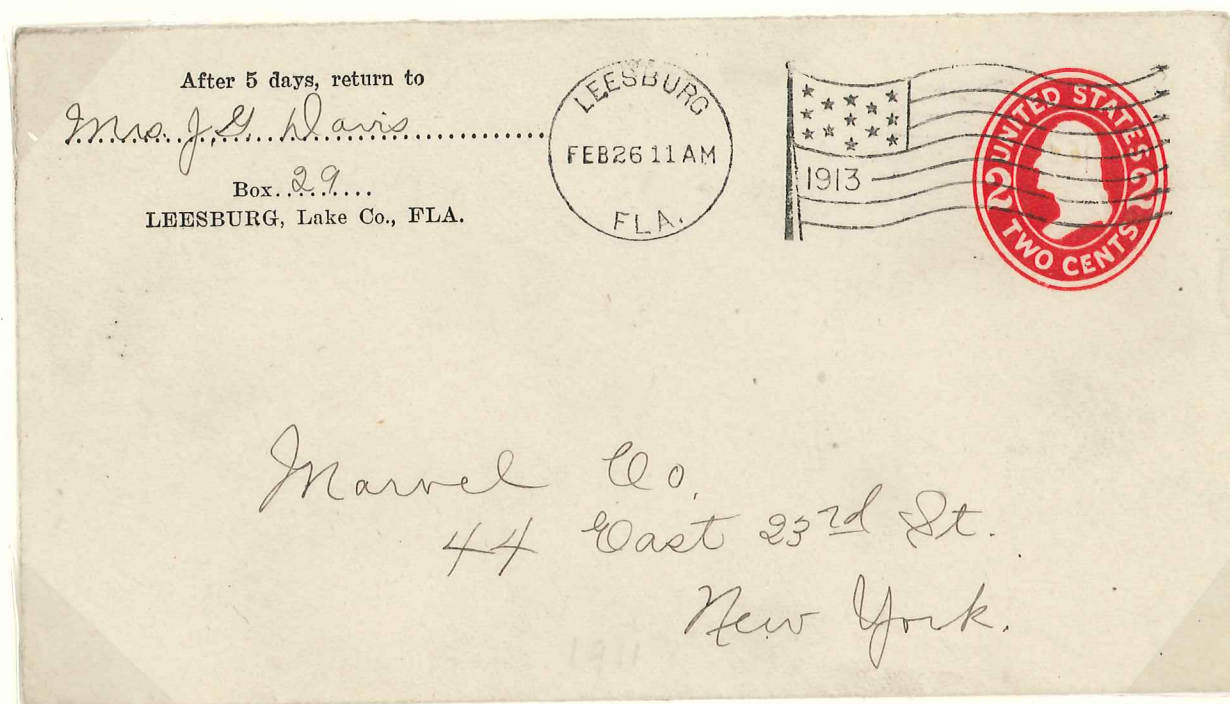 After 5 days, return to
Mrs. J. G. Davis
Box 29
LEESBURG, Lake Co., FLA.
LEESBURG
FEB26 11 AM
FLA.
1913
UNITED STATES
2 2
TWO CENTS
Marvel Co.
44 East 23rd St.
New York.
1911